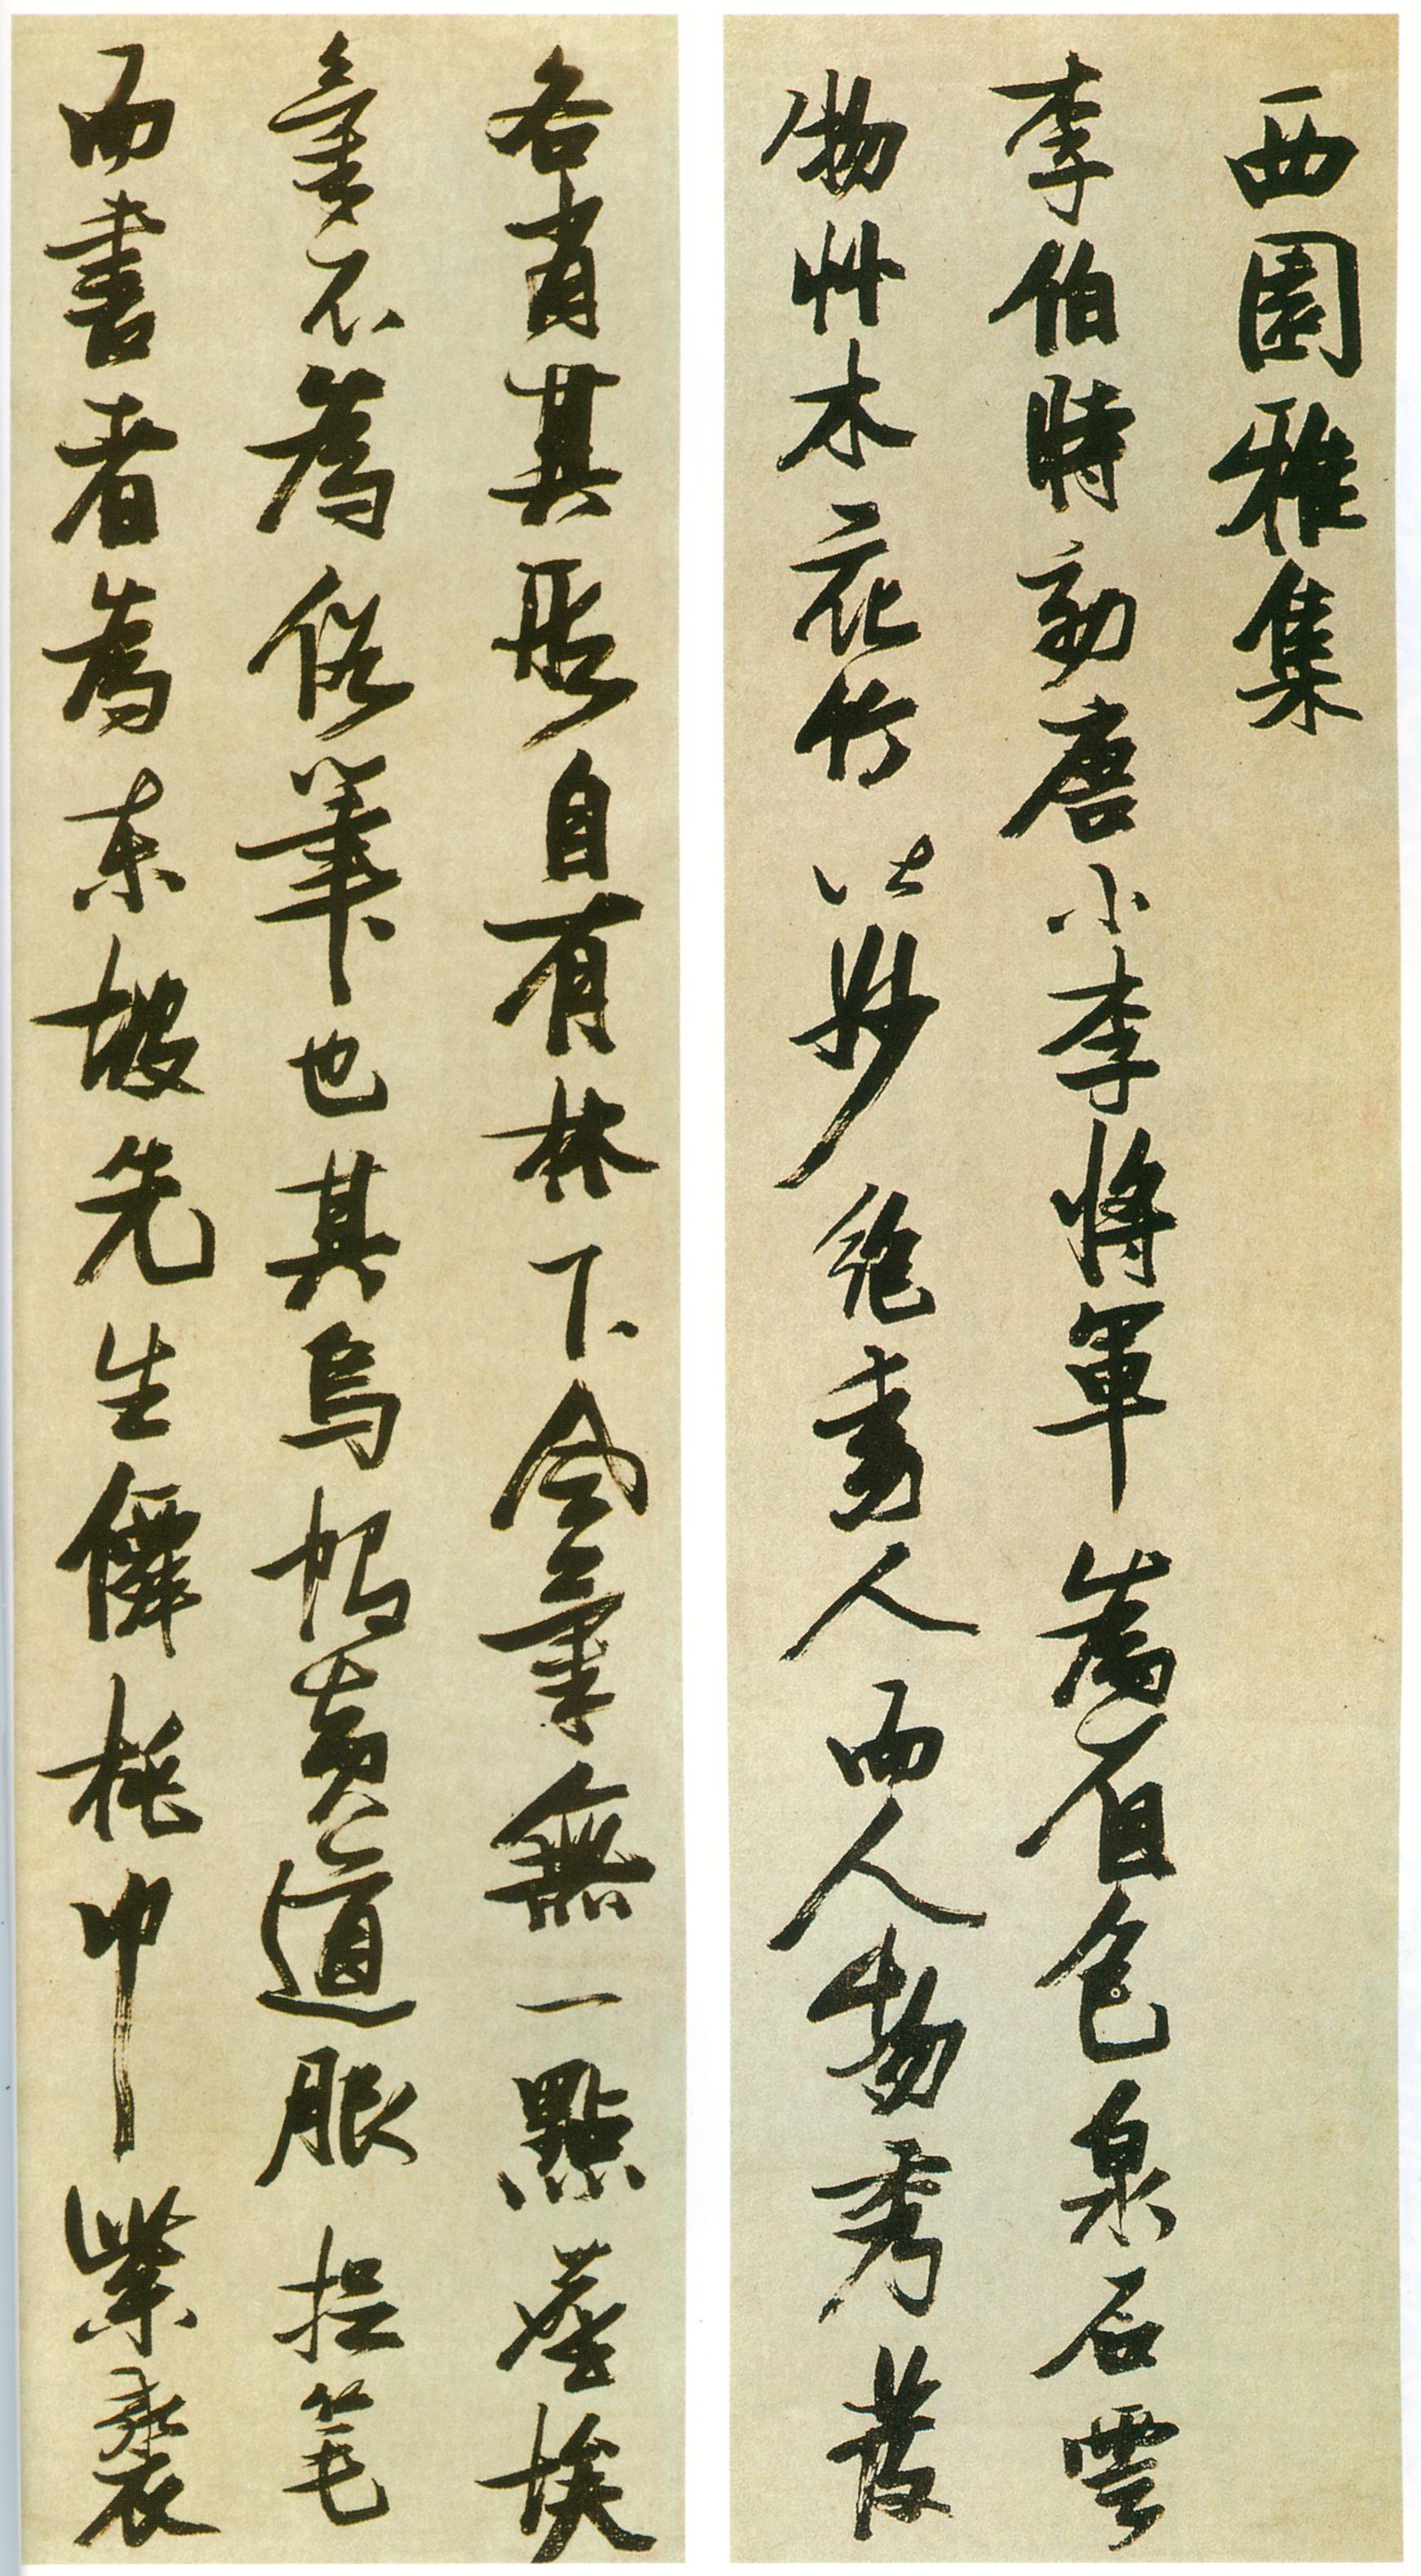 西園雅集
李伯時効唐小李將軍為着色泉石雲
物艸木花竹皆妙絶動人而人物秀發
各肖其形自有林下無一點塵埃
不為俗筆也其烏帽黃道服捉笔
而書者為東坡先生僊桃巾紫裘